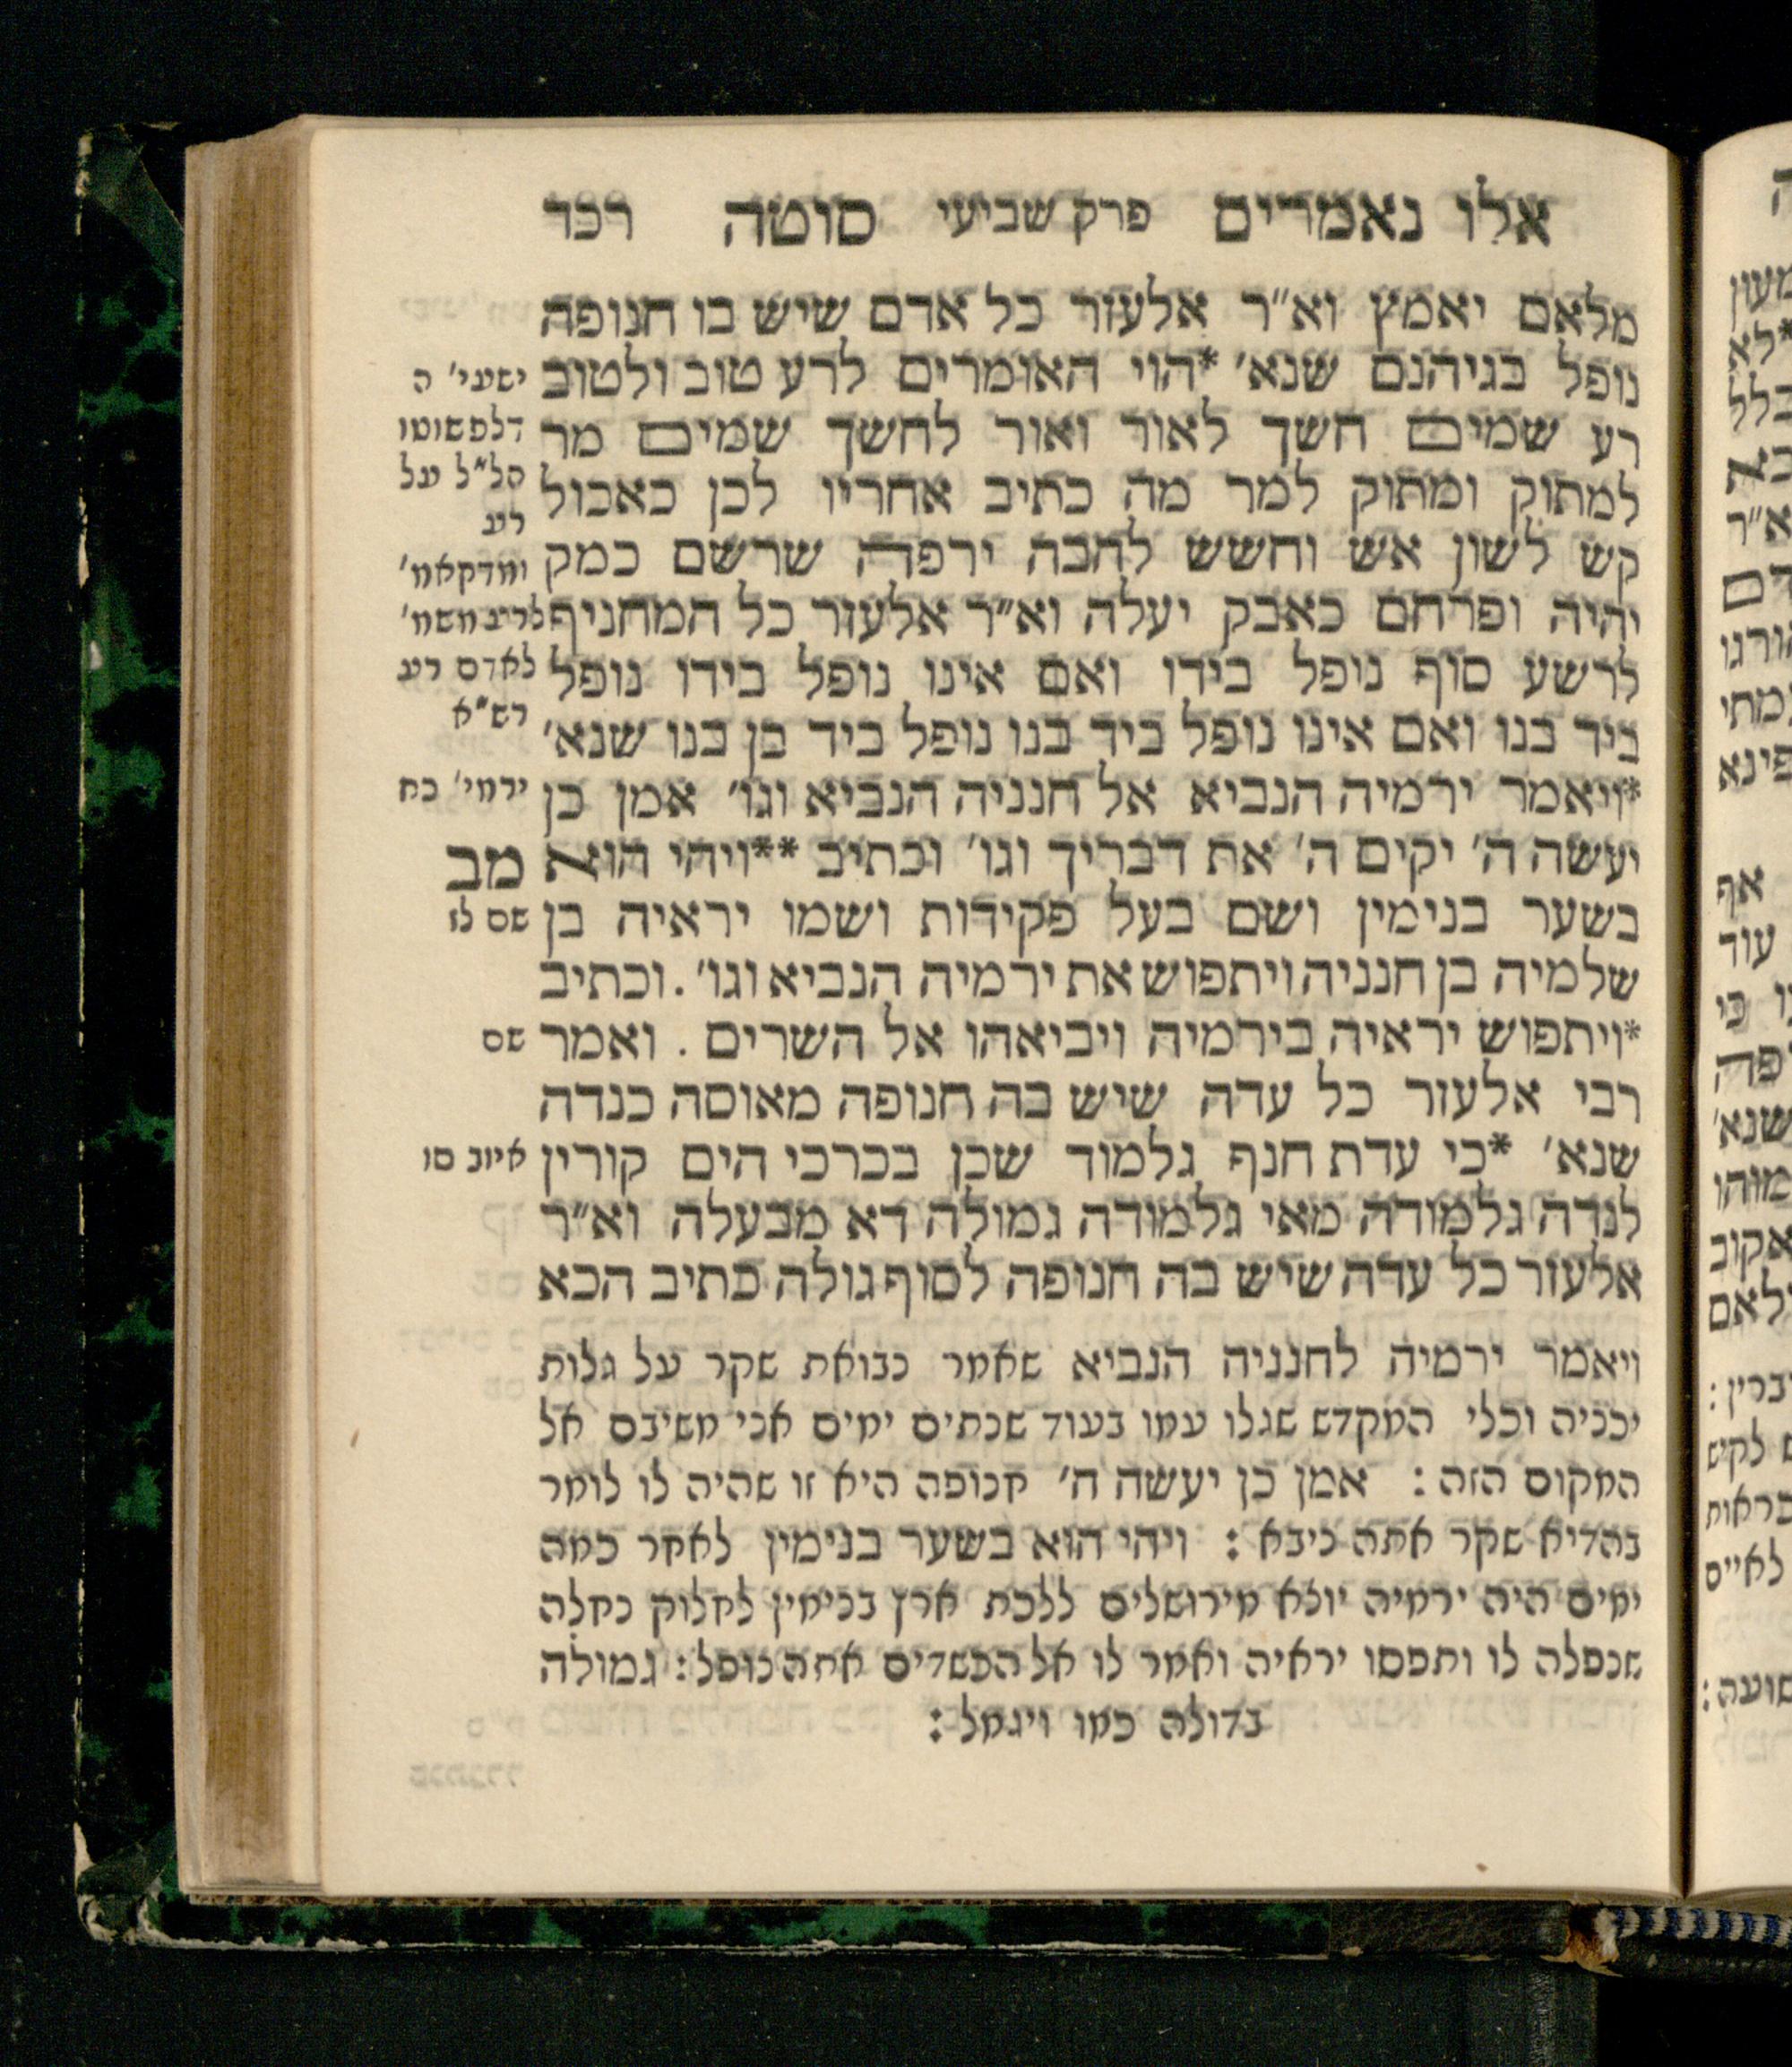 אלו נאמרים פרק שביעי סוטה רכד
מלאם יאמץ וא"ר אלעזר כל אדם שיש בו חנופה
נופל בגיהנם שנא' *הוי האומרים לרע טוב ולטוב
רע שמים חשך לאור ואור לחשך שמים מר
למתוק ומתוק למר מה כתיב אחריו לכן כאכול
קש לשון אש וחשש להבה ירפה שרשם כמק
יהיה ופרחם כאבק יעלה וא"ר אלעזר כל המחניף
לרשע סוף נופל בידו ואם אינו נופל בידו נופל
ביד בנו ואם אינו נופל ביד בנו נופל ביד בן בנו שנא'
*ויאמר ירמיה הנביא אל חנניה הנביא וגו' אמן כן
יעשה ה' יקים ה' את דבריך וגו' וכתיב **ויהי הוא
בשער בנימין ושם בעל פקידות ושמו יראיה בן
שלמיה בן חנניה ויתפוש את ירמיה הנביא וגו'. וכתיב
*ויתפוש יראיה בירמיה ויביאהו אל השרים. ואמר
רבי אלעזר כל עדה שיש בה חנופה מאוסה כנדה
שנא' *כי עדת חנף גלמוד שכן בכרכי הים קורין
לנדה גלמודה מאי גלמודה גמולה דא מבעלה וא"ר
אלעזר כל עדה שיש בה חנופה לסוף גולה כתיב הכא
ישעי' ה
דלפשוטו
הל"ל על
רע
ומדקאמ'
לרע משמ'
לאדם רע
רש"א
ירמי' כח
מב
שם לז
שם
איוב טו
ויאמר ירמיה לחנניה הנביא שאמר נבואת שקר על גלות
יכניה וכלי המקדש שגלו עמו בעוד שנתים ימים אני משיבם אל
המקום הזה: אמן כן יעשה ה' חנופה היא זו שהיה לו לומר
בהדיא שקר אתה ניבא: ויהי הוא בשער בנימין לאחר כמה
ימים היה ירמיה יוצא מירושלים ללכת ארץ בנימין לחלוק נחלה
שנפלה לו ותפסו יראיה ואמר לו אל הכשדים אתה נופל: גמולה
בדולה כמו ויגמל: